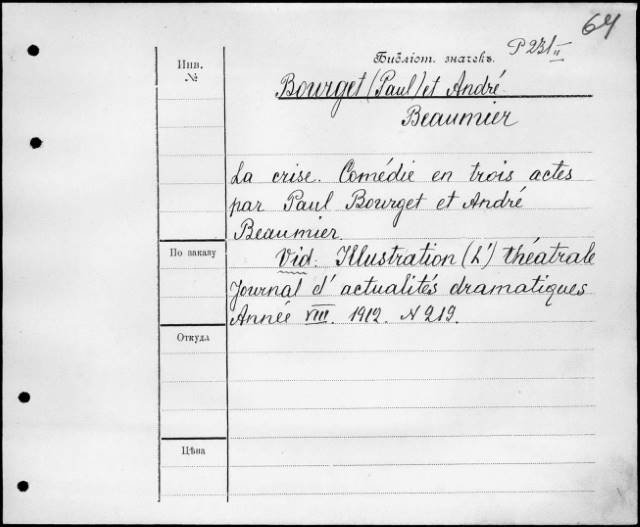 64
Инв.
№
Библіот. значекъ. P 231 II
Bourget (Paul) et André
Beaumier
La crise. Comédie en trois actes
par Paul Bourget et André
Beaumier.
По заказу
Vid. Illustration (L') théatrale
Journal d'actualités dramatiques
Année VIII. 1912. N 219.
Откуда
Цѣна